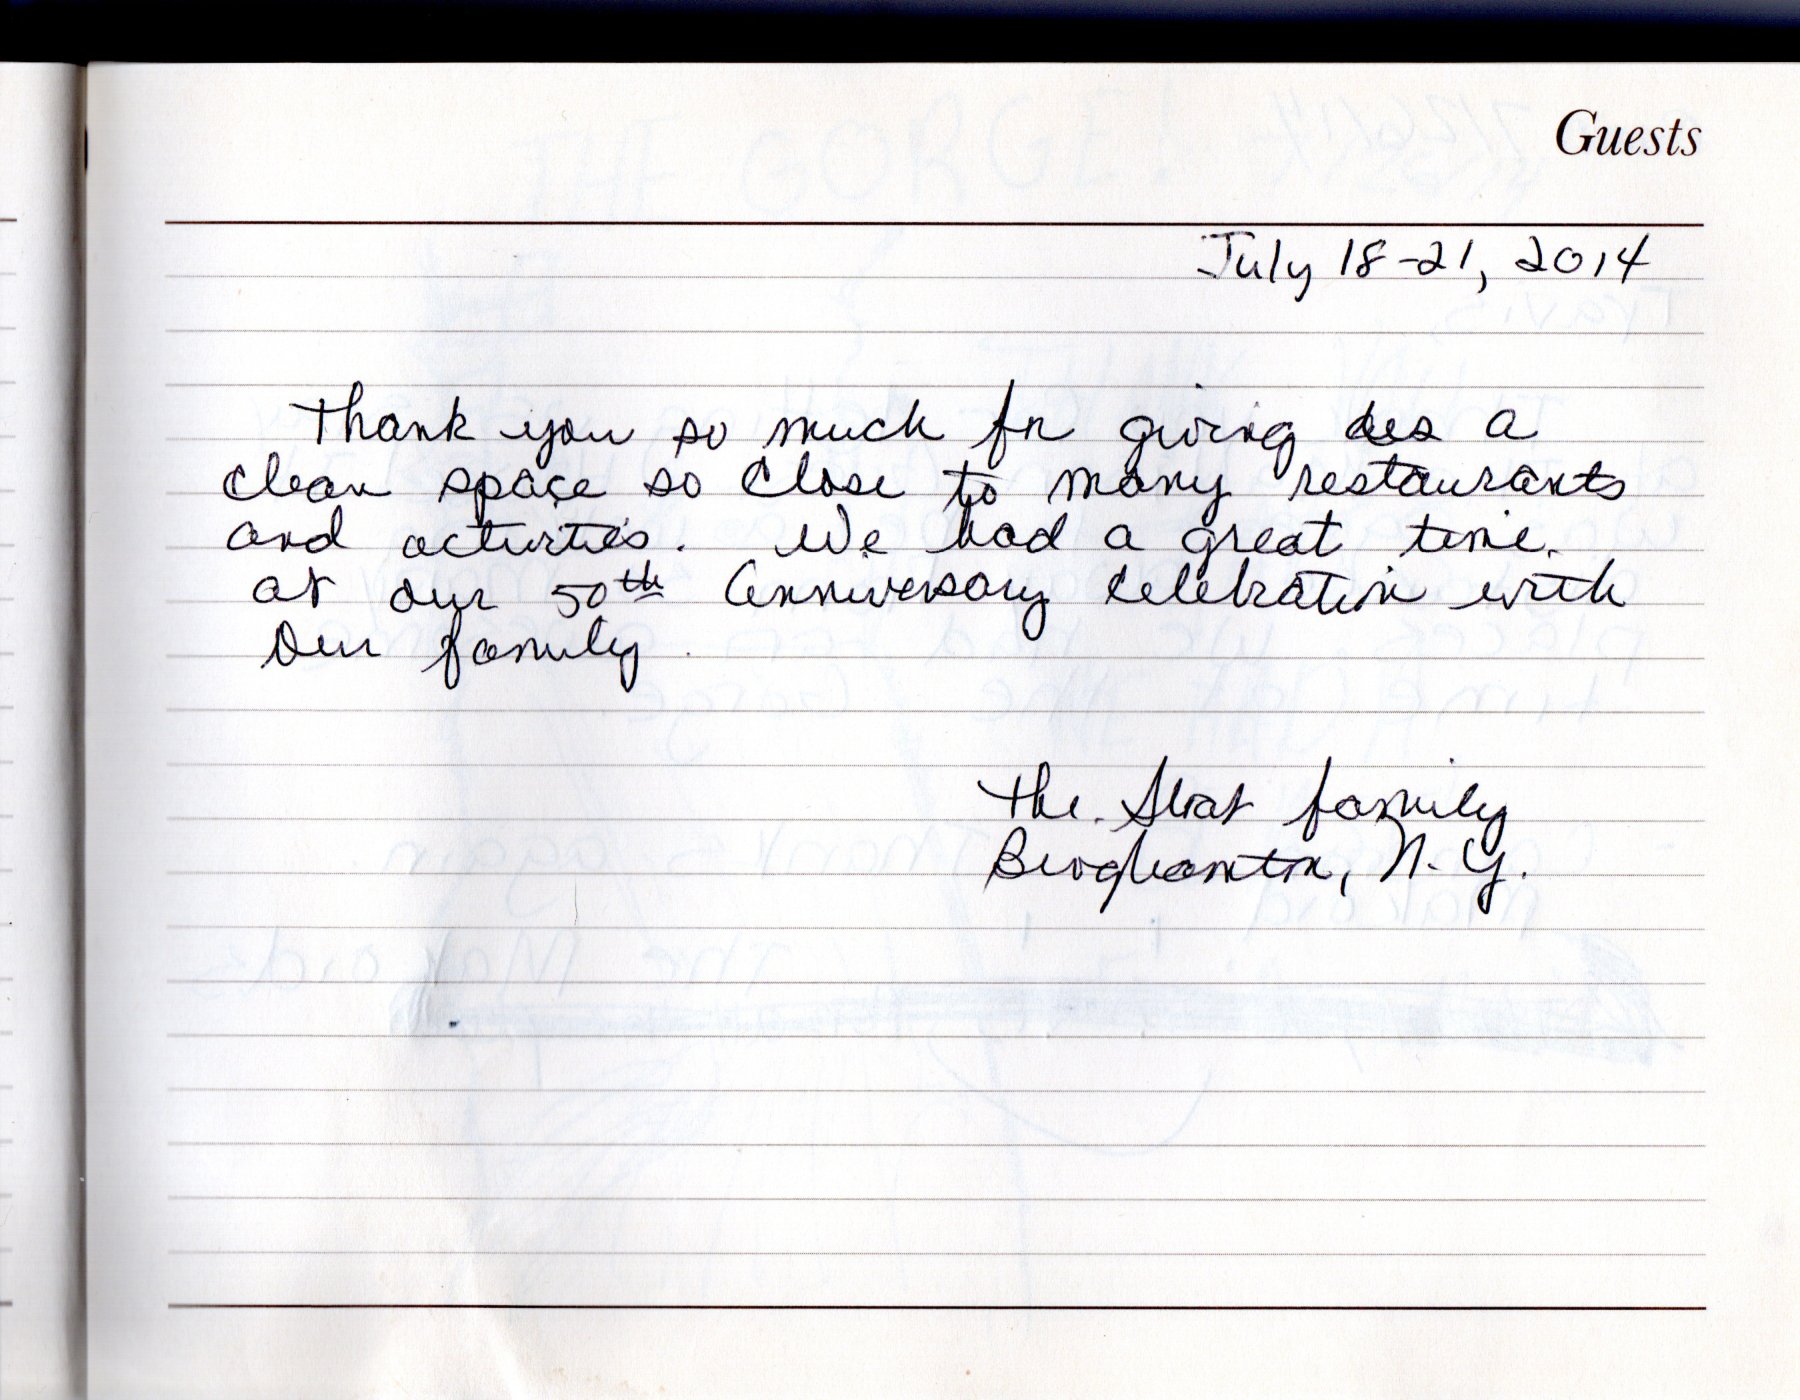 Guests
July 18-21, 2014
Thank you so much for giving us a
clean space so close to many restaurants
and activities. We had a great time.
at our 50th Anniversary celebration with
our family.
The family
Binghamton, N.Y.